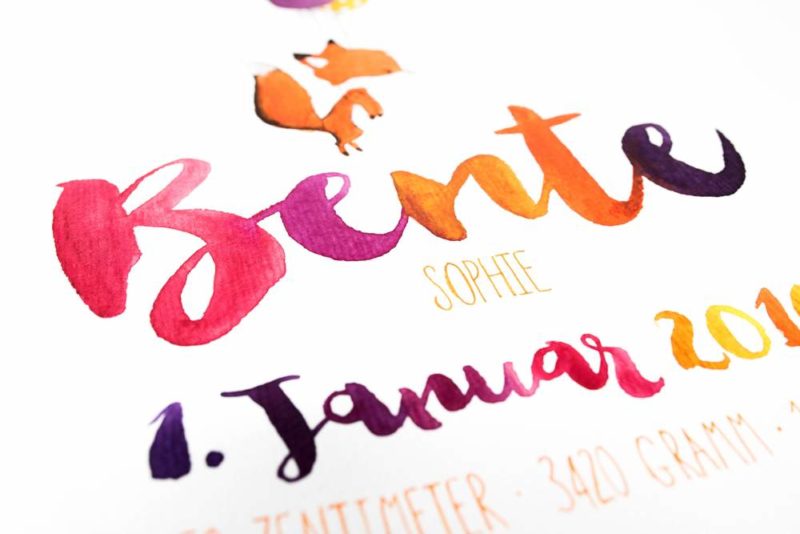 Bente
SOPHIE
1. Januar
ZENTIMETER · 3420 GRAMM ·